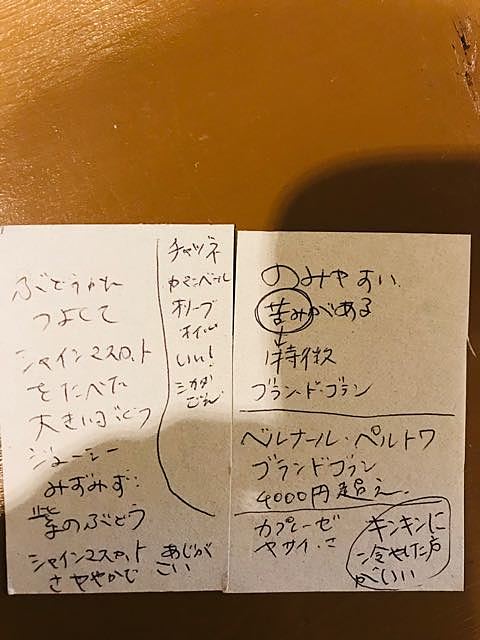 ぶどうかん
つよして
シャインマスカット
をたべた
大きいぶどう
ジューシー
みずみず:
紫のぶどう
シャインマスカット あじが
さややかじ こい
チャツネ
カマンベール
オリーブ
オイル
いい!
シカゴ
ごえ
のみやすい
苦みがある
特徴
ブラン・ド・ブラン
ベルナール・ペルトワ
ブランドブラン
4000円超え、
カプレーゼ
ヤサイ
キンキンに
冷やした方
がいい